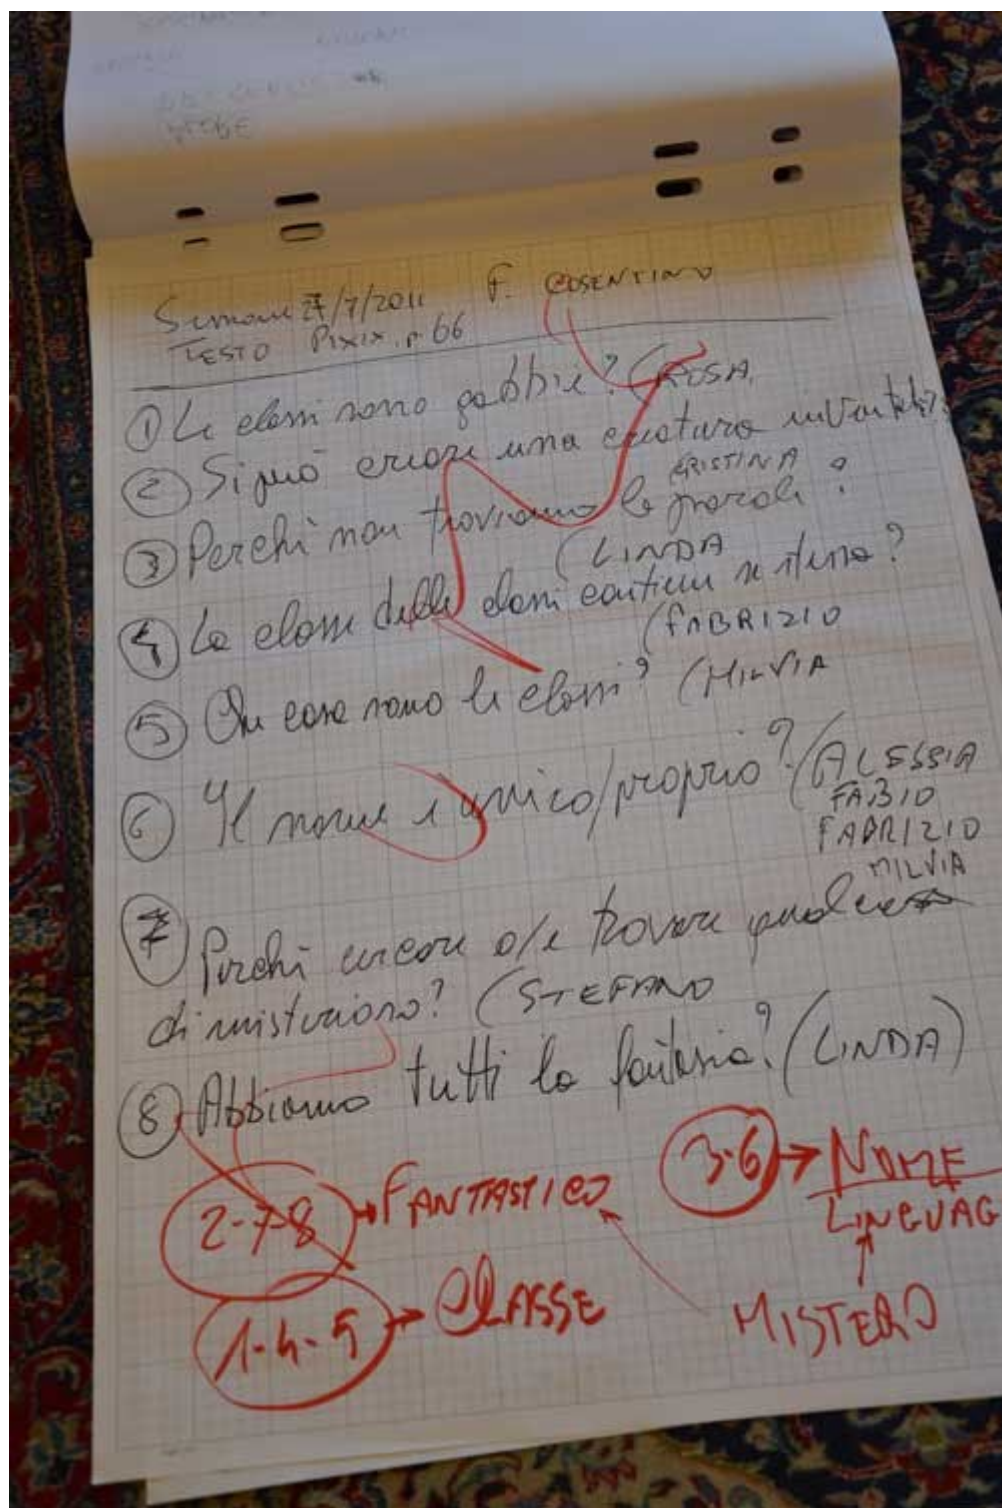 27/7/2011 F. COSENTINO
TESTO PIXIX. p. 66
① Le classi sono gabbie? (ROSA
② Si può creare una creatura inventata?
CRISTINA
③ Perché non troviamo le parole?
(LINDA
④ La classe delle classi contiene se stessa?
(FABRIZIO
⑤ Che cosa sono le classi? (MILVIA
⑥ Il nome è unico/proprio? (ALESSIA
FABIO
FABRIZIO
MILVIA
⑦ Perché cercare o/e trovare qualcosa
di misterioso? (STEFANO
⑧ Abbiamo tutti la fantasia? (LINDA)
2-7-8 → FANTASTICO
3-6 → NOME
LINGUAG
1-4-5 → CLASSE
MISTERO